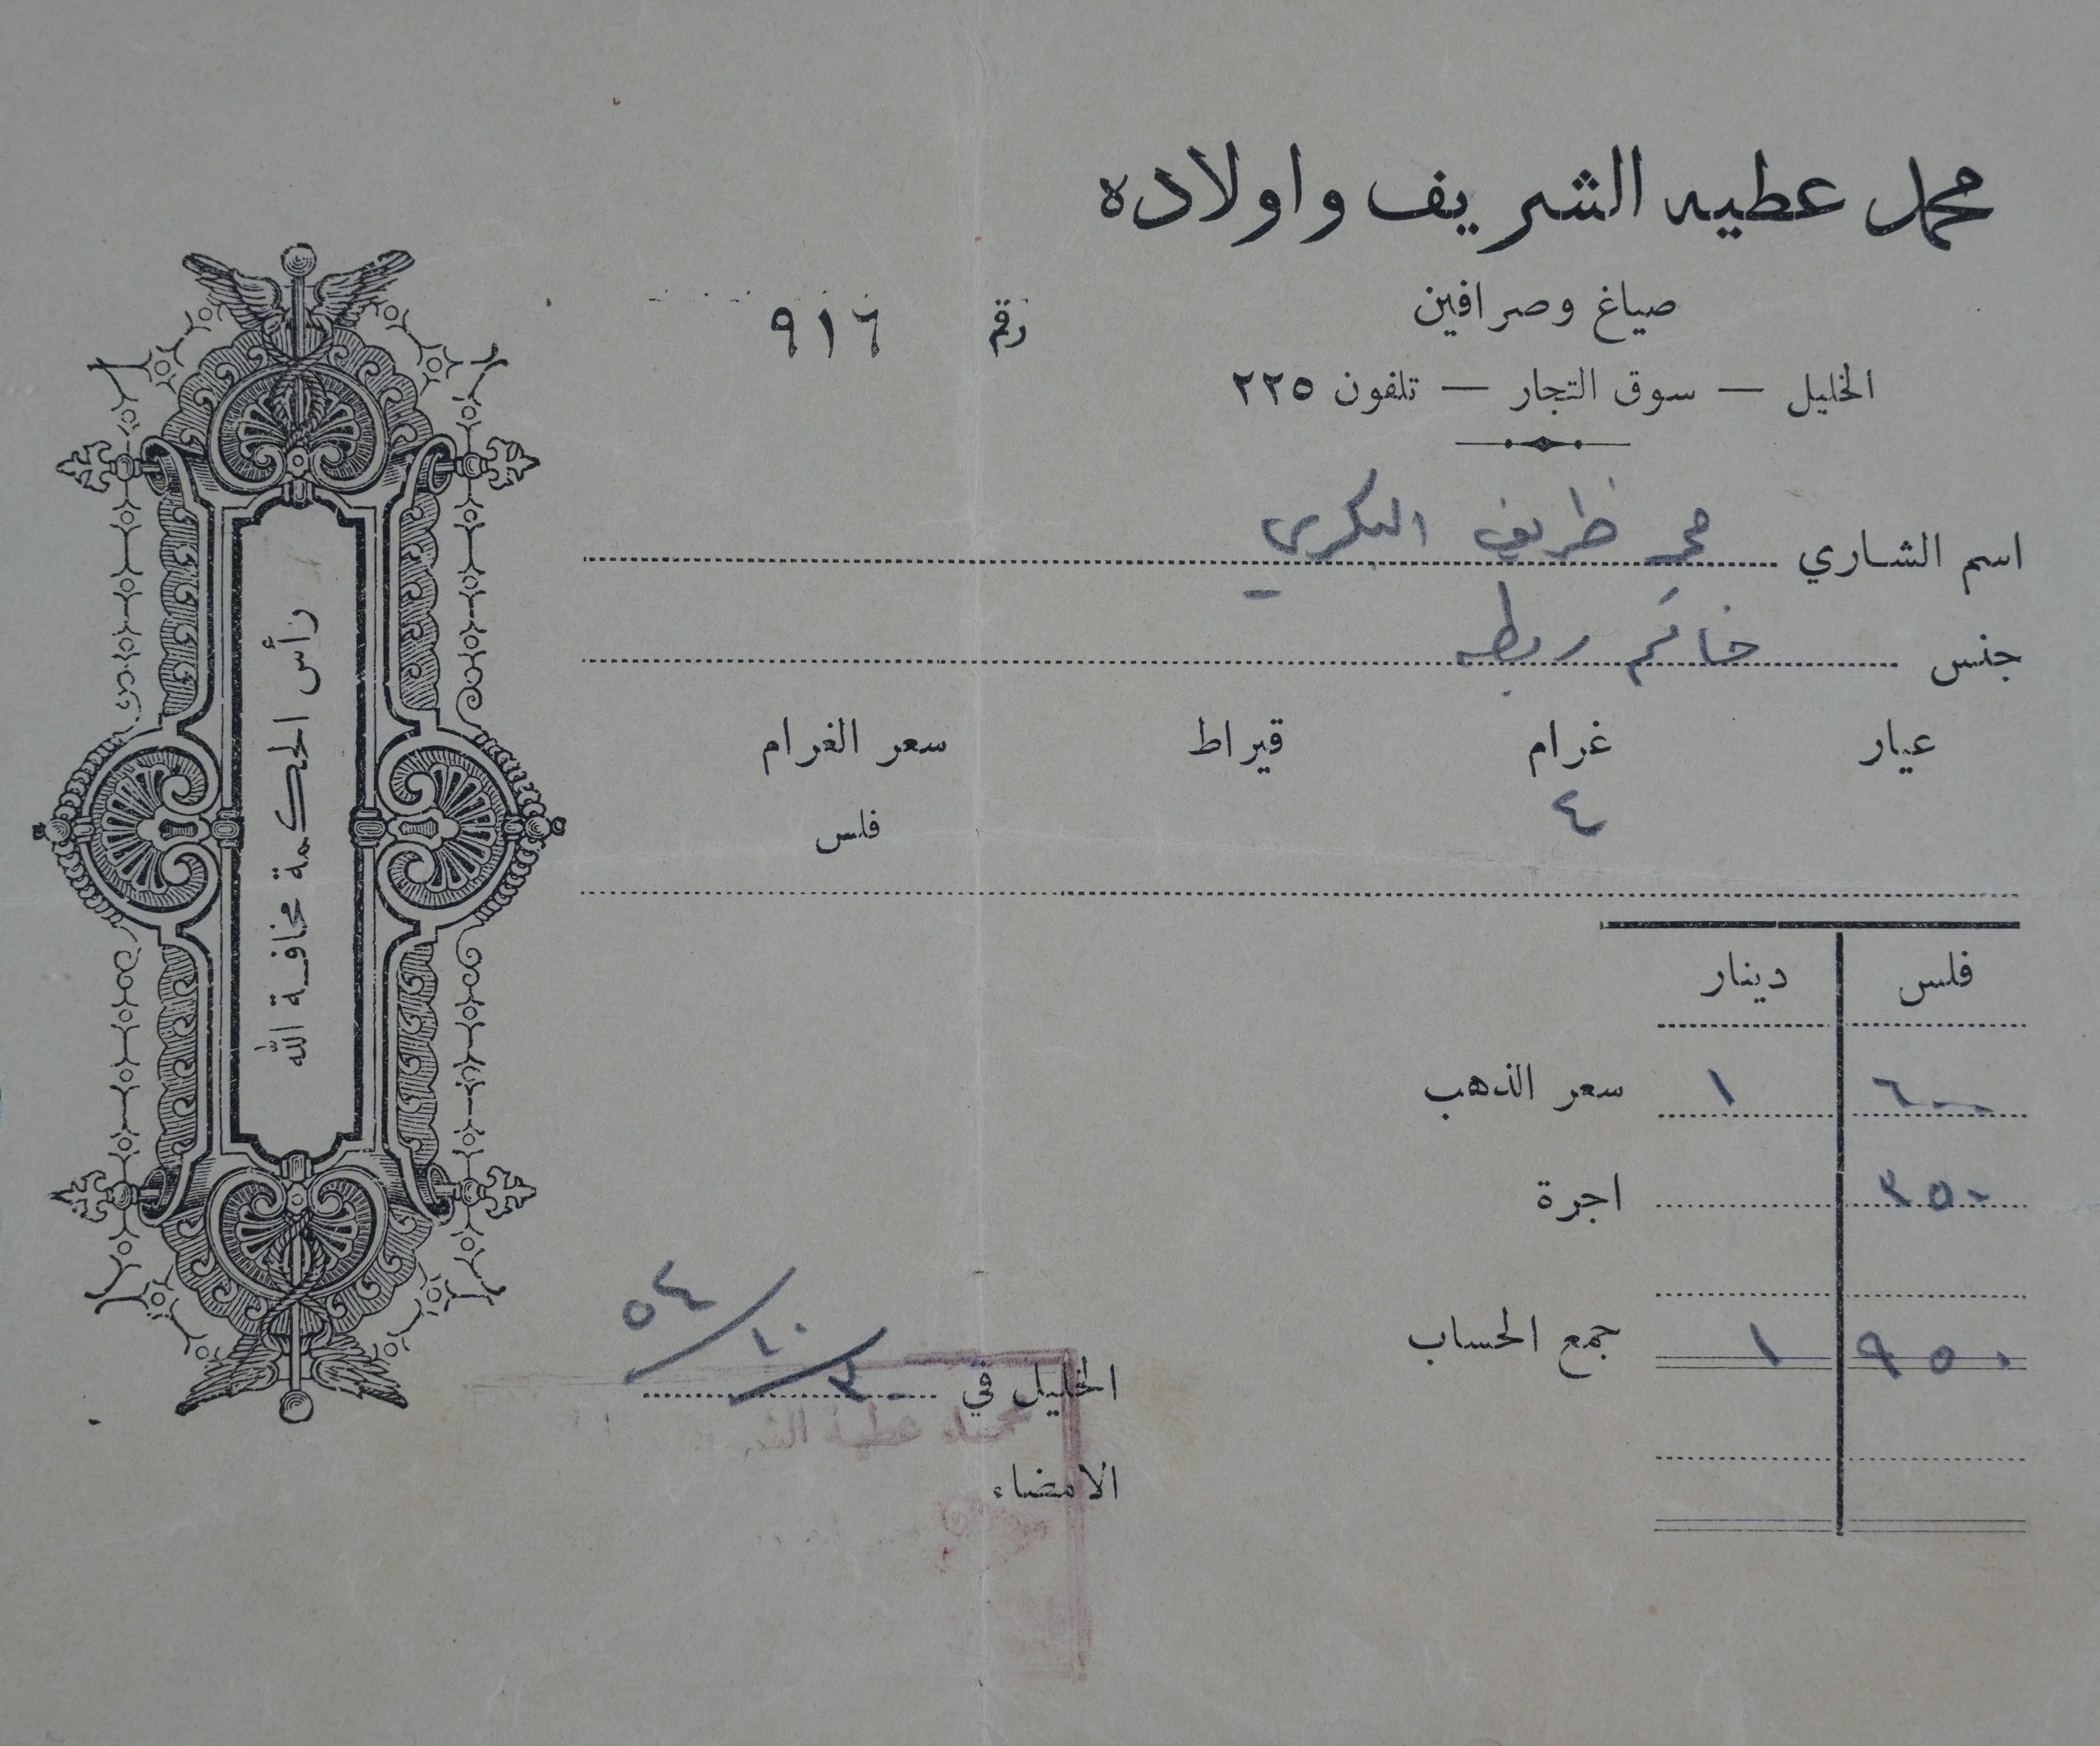 محمد عطيه الشريف واولاده
صياغ وصرافين
الخليل — سوق التجار — تلفون ٢٢٥
رقم ٩١٦
اسم الشاري محمد ظريف البكري
جنس خاتم ربطه
عيار غرام قيراط سعر الغرام
٤ فلس
فلس دينار
٦٠٠ ١ سعر الذهب
٣٥٠ اجرة
٩٥٠ ١ جمع الحساب
الخليل في ٣٠/١٠/٥٤
محمد عطية
الامضاء
رأس الحكمة مخافة الله